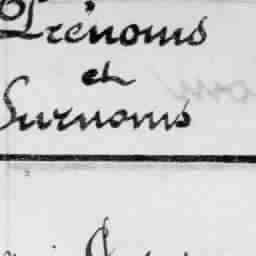 Prénoms
et
Surnoms